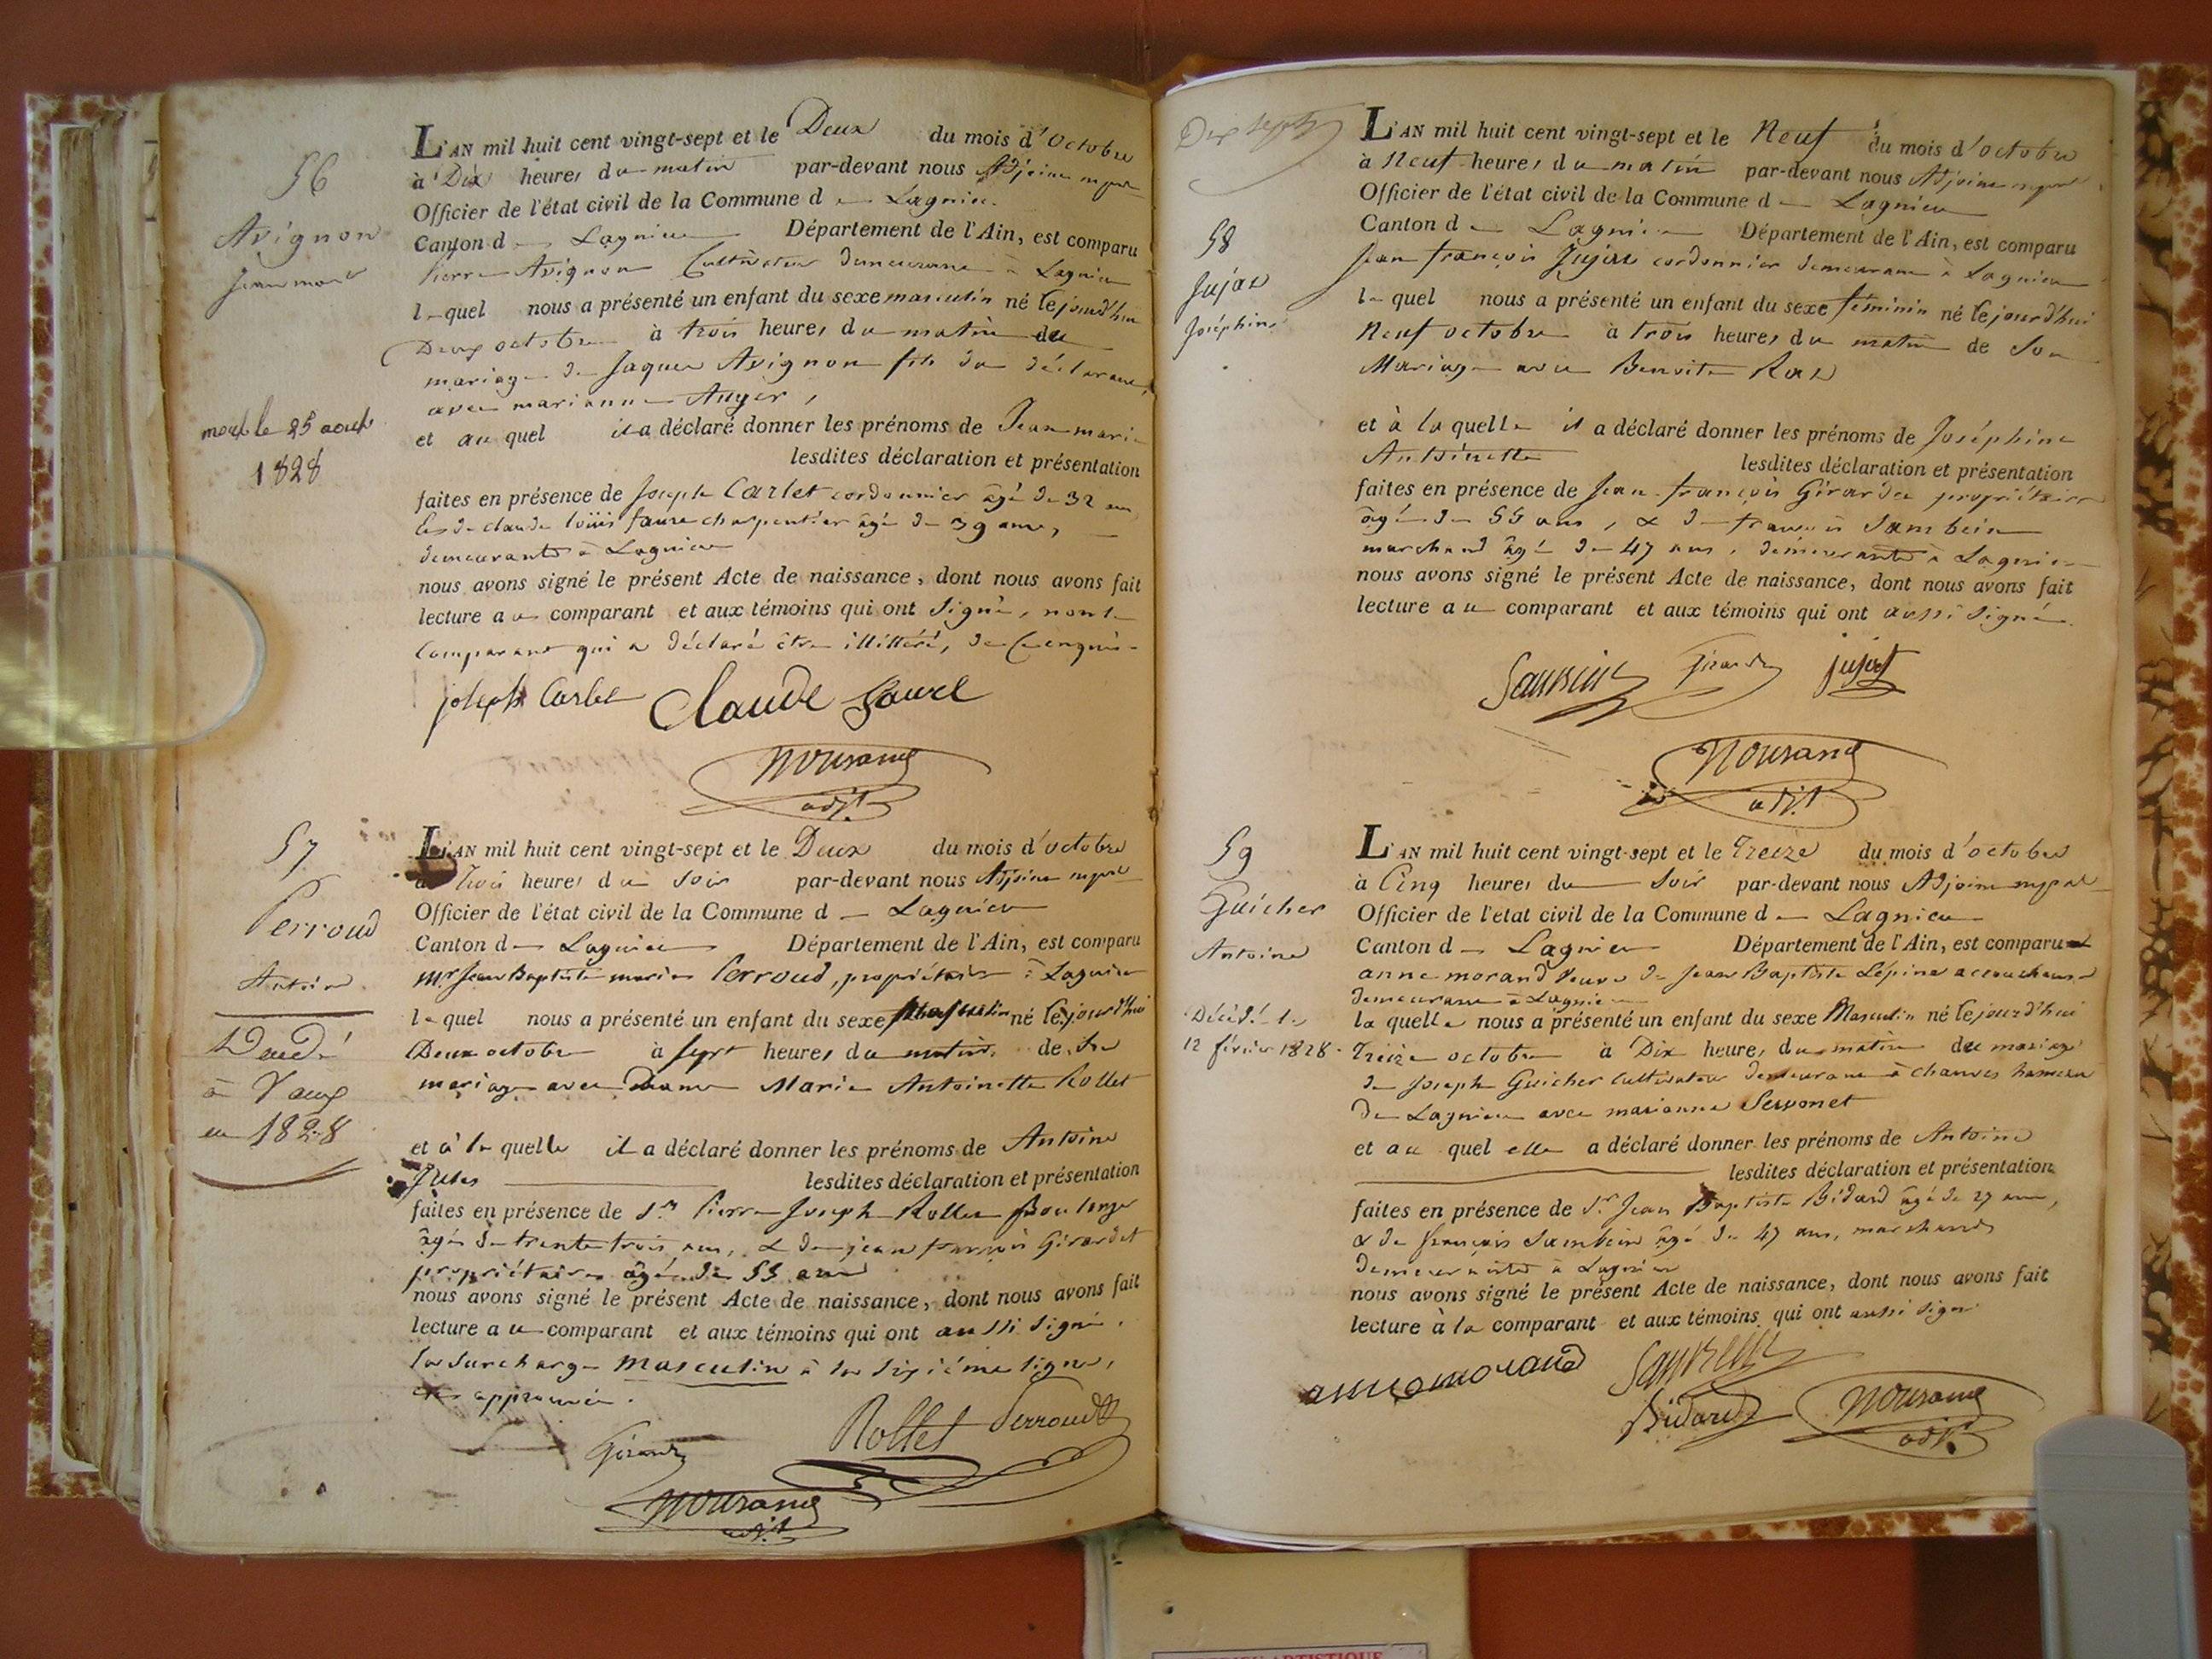 56
Avignon
Jean marie
mort le 25 aout
1828
L'AN mil huit cent vingt-sept et le Deux du mois d'octobre
à Dix heures du matin par-devant nous Adjoint mpal
Officier de l'état civil de la Commune de Lagnieu
Canton de Lagnieu Département de l'Ain, est comparu
Pierre Avignon Cultivateur demeurant à Lagnieu
lequel nous a présenté un enfant du sexe masculin né lejourd'hui
Deux octobre à trois heures du matin du
mariage de Jaques Avignon fils du déclarant
avec marianne Auger,
et au quel il a déclaré donner les prénoms de Jean marie
lesdites déclaration et présentation
faites en présence de Joseph Carlet cordonnier âgé de 32 ans
& de claude louis faure charpentier âgé de 39 ans,
demeurants à Lagnieu
nous avons signé le présent Acte de naissance, dont nous avons fait
lecture au comparant et aux témoins qui ont signé, non le
comparant qui a déclaré être illitéré, de ce enquis.
joseph Carlet Claude faure
adjt
57
Perroud
Antoine
Décédé
à Vaux
en 1828
L'AN mil huit cent vingt-sept et le Deux du mois d'octobre
à Trois heures du soir par-devant nous Adjoint mpal
Officier de l'état civil de la Commune de Lagnieu
Canton de Lagnieu Département de l'Ain, est comparu
Mr Jean Baptiste marie Perroud, propriétaire à Lagnieu
lequel nous a présenté un enfant du sexe Masculin né lejourd'hui
Deux octobre à sept heures du matin de son
mariage avec Dame Marie Antoinette Rollet
et à la quelle il a déclaré donner les prénoms de Antoine
Jules lesdites déclaration et présentation
faites en présence de Sr Pierre Joseph Rollet Boulanger
âgé de trente trois ans, & de jean françois Girardet
propriétaire âgé de 55 ans
nous avons signé le présent Acte de naissance, dont nous avons fait
lecture au comparant et aux témoins qui ont aussi signé.
la surcharge masculin à la sixième ligne,
est approuvée.
Rollet Perroud
adjt
Dix sept
58
Jujat
Joséphine
L'AN mil huit cent vingt-sept et le Neuf du mois d'octobre
à Neuf heures du matin par-devant nous Adjoint mpal
Officier de l'état civil de la Commune de Lagnieu
Canton de Lagnieu Département de l'Ain, est comparu
Jean françois Jujat cordonnier demeurant à Lagnieu
lequel nous a présenté un enfant du sexe féminin né lejourd'hui
Neuf octobre à trois heures du matin de son
Mariage avec Benoite
et à la quelle il a déclaré donner les prénoms de Joséphine
Antoinette lesdites déclaration et présentation
faites en présence de Jean françois Girardet propriétaire
âgé de 55 ans, & de françois
marchand âgé de 47 ans, demeurants à Lagnieu
nous avons signé le présent Acte de naissance, dont nous avons fait
lecture au comparant et aux témoins qui ont aussi signé.
jujat
adjt
59
Guicher
Antoine
Décédé le
12 février 1828
L'AN mil huit cent vingt-sept et le Treize du mois d'octobre
à Cinq heures du soir par-devant nous Adjoint mpal
Officier de l'état civil de la Commune de Lagnieu
Canton de Lagnieu Département de l'Ain, est comparue
anne morand veuve de Jean Baptiste Lépine accoucheuse
demeurant à Lagnieu
la quelle nous a présenté un enfant du sexe Masculin né lejourd'hui
Treize octobre à Dix heures du matin du mariage
de Joseph Guicher cultivateur demeurant à chanves hameau
de Lagnieu avec marianne Servonet
et au quel elle a déclaré donner les prénoms de Antoine
lesdites déclaration et présentation
faites en présence de Sr Jean Baptiste Bidard âgé de 27 ans,
& de françois âgé de 47 ans, marchands
demeurants à Lagnieu
nous avons signé le présent Acte de naissance, dont nous avons fait
lecture à la comparant et aux témoins qui ont aussi signé
anne morand
Bidard
adjt